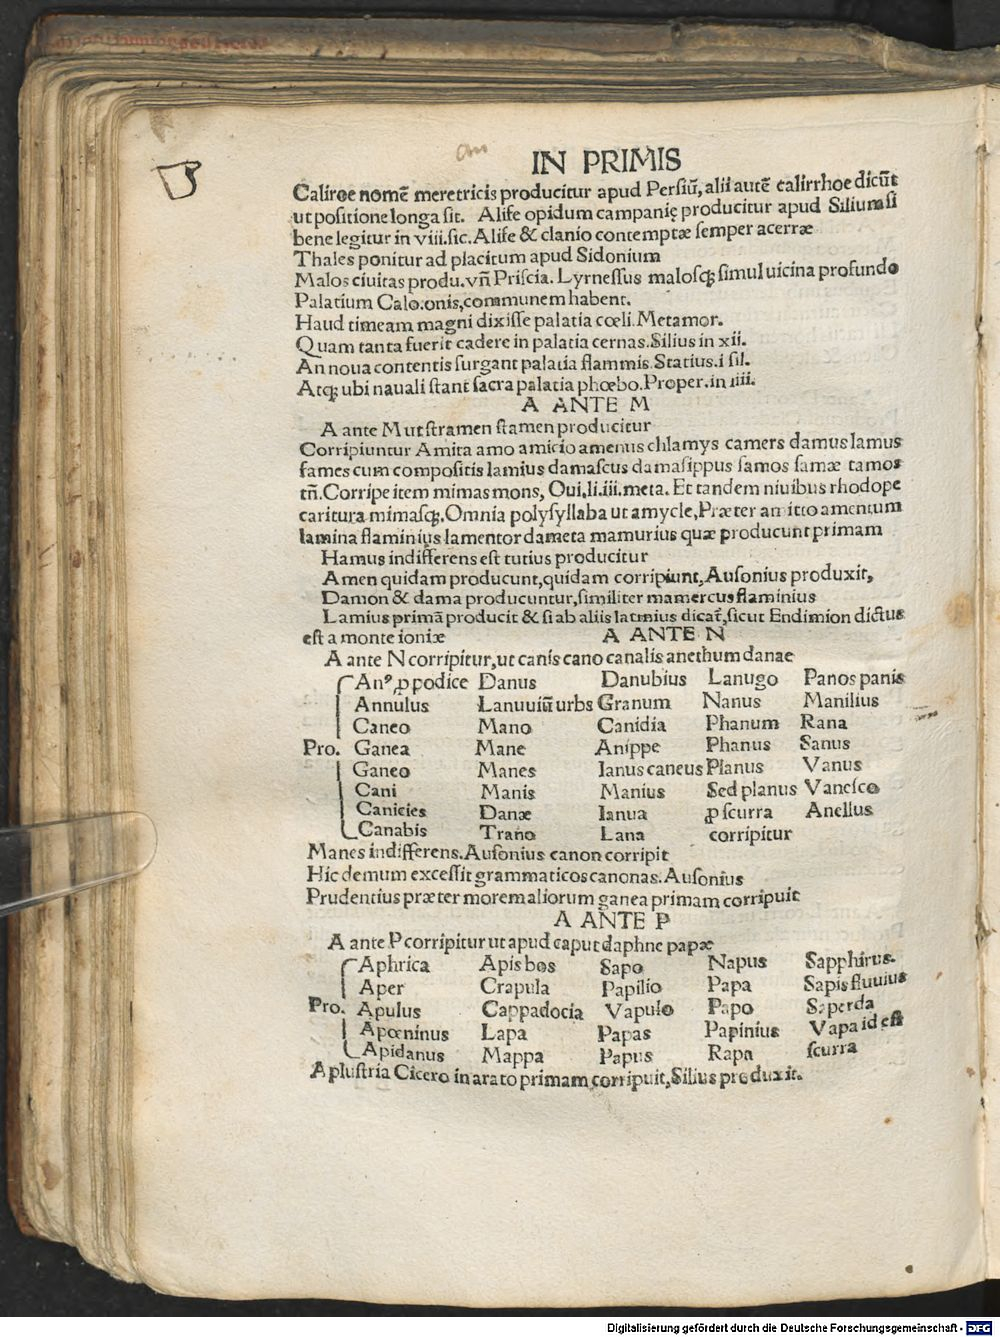 an
IN PRIMIS
Caliroe nomē meretricis producitur apud Persiū, alii autē calirrhoe dicūt
ut positione longa sit. Alife opidum campanię producitur apud Silium si
bene legitur in viii.sic.Alife & clanio contemptæ semper acerræ
Thales ponitur ad placitum apud Sidonium
Malos ciuitas produ. vñ Priscia. Lyrnessus malosqꝫ simul uicina profundo
Palatium Calo.onis,communem habent.
Haud timeam magni dixisse palatia cœli.Metamor.
Quam tanta fuerit cadere in palatia cernas.Silius in xii.
An noua contentis surgant palatia flammis.Statius.i sil.
Atqꝫ ubi nauali stant sacra palatia phœbo.Proper.in iiii.
A ANTE M
A ante M ut stramen stamen producitur
Corripiuntur Amita amo amicio amenus chlamys camers damus lamus
fames cum compositis lamius damascus damasippus samos samæ tamos
tñ.Corripe item mimas mons, Oui.li.iii.meta. Et tandem niuibus rhodope
caritura mimasqꝫ.Omnia polysyllaba ut amycle,Præter amitto amentum
lamina flaminius lamentor dameta mamurius quæ producunt primam
Hamus indifferens est tutius producitur
Amen quidam producunt,quidam corripiunt,Ausonius produxit,
Damon & dama producuntur,similiter mamercus flaminius
Lamius primā producit & si ab aliis latmius dicat̄,sicut Endimion dictus
est a monte ioniæ A ANTE N
A ante N corripitur,ut canis cano canalis anethum danae
Anꝰ ꝓ podice Danus Danubius Lanugo Panos panis
Annulus Lanuuiū urbs Granum Nanus Manilius
Caneo Mano Canidia Phanum Rana
Pro. Ganea Mane Anippe Phanus Sanus
Ganeo Manes Ianus caneus Planus Vanus
Cani Manis Manius Sed planus Vanesco
Canicies Danæ Ianua ꝓ scurra Anellus
Canabis Trano Lana corripitur
Manes indifferens.Ausonius canon corripit
Hic demum excessit grammaticos canonas.Ausonius
Prudentius præter morem aliorum ganea primam corripuit
A ANTE P
A ante P corripitur ut apud caput daphne papæ
Aphrica Apis bos Sapo Napus Sapphirus.
Aper Crapula Papilio Papa Sapis fluuius
Pro. Apulus Cappadocia Vapulo Papo Saperda
Apœninus Lapa Papas Papinius Vapa id est
Apidanus Mappa Papus Rapa scurra
Aplustria Cicero in arato primam corripuit,Silius produxit.
Digitalisierung gefördert durch die Deutsche Forschungsgemeinschaft - DFG